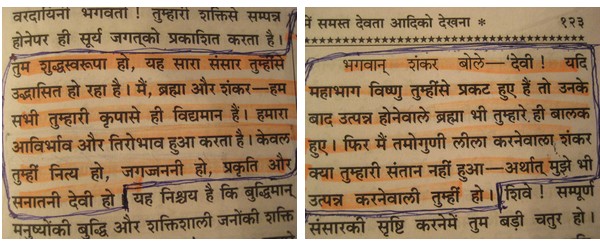 वरदायिनी भगवती ! तुम्हारी शक्तिसे सम्पन्न
होनेपर ही सूर्य जगत्को प्रकाशित करता है।
तुम शुद्धस्वरूपा हो, यह सारा संसार तुम्हींसे
उद्भासित हो रहा है। मैं, ब्रह्मा और शंकर—हम
सभी तुम्हारी कृपासे ही विद्यमान हैं। हमारा
आविर्भाव और तिरोभाव हुआ करता है। केवल
तुम्हीं नित्य हो, जगज्जननी हो, प्रकृति और
सनातनी देवी हो। यह निश्चय है कि बुद्धिमान्
मनुष्योंकी बुद्धि और शक्तिशाली जनोंकी शक्ति
में समस्त देवता आदिको देखना * १२३
भगवान् शंकर बोले—'देवी ! यदि
महाभाग विष्णु तुम्हींसे प्रकट हुए हैं तो उनके
बाद उत्पन्न होनेवाले ब्रह्मा भी तुम्हारे ही बालक
हुए। फिर मैं तमोगुणी लीला करनेवाला शंकर
क्या तुम्हारी संतान नहीं हुआ—अर्थात् मुझे भी
उत्पन्न करनेवाली तुम्हीं हो। शिवे ! सम्पूर्ण
संसारकी सृष्टि करनेमें तुम बड़ी चतुर हो।